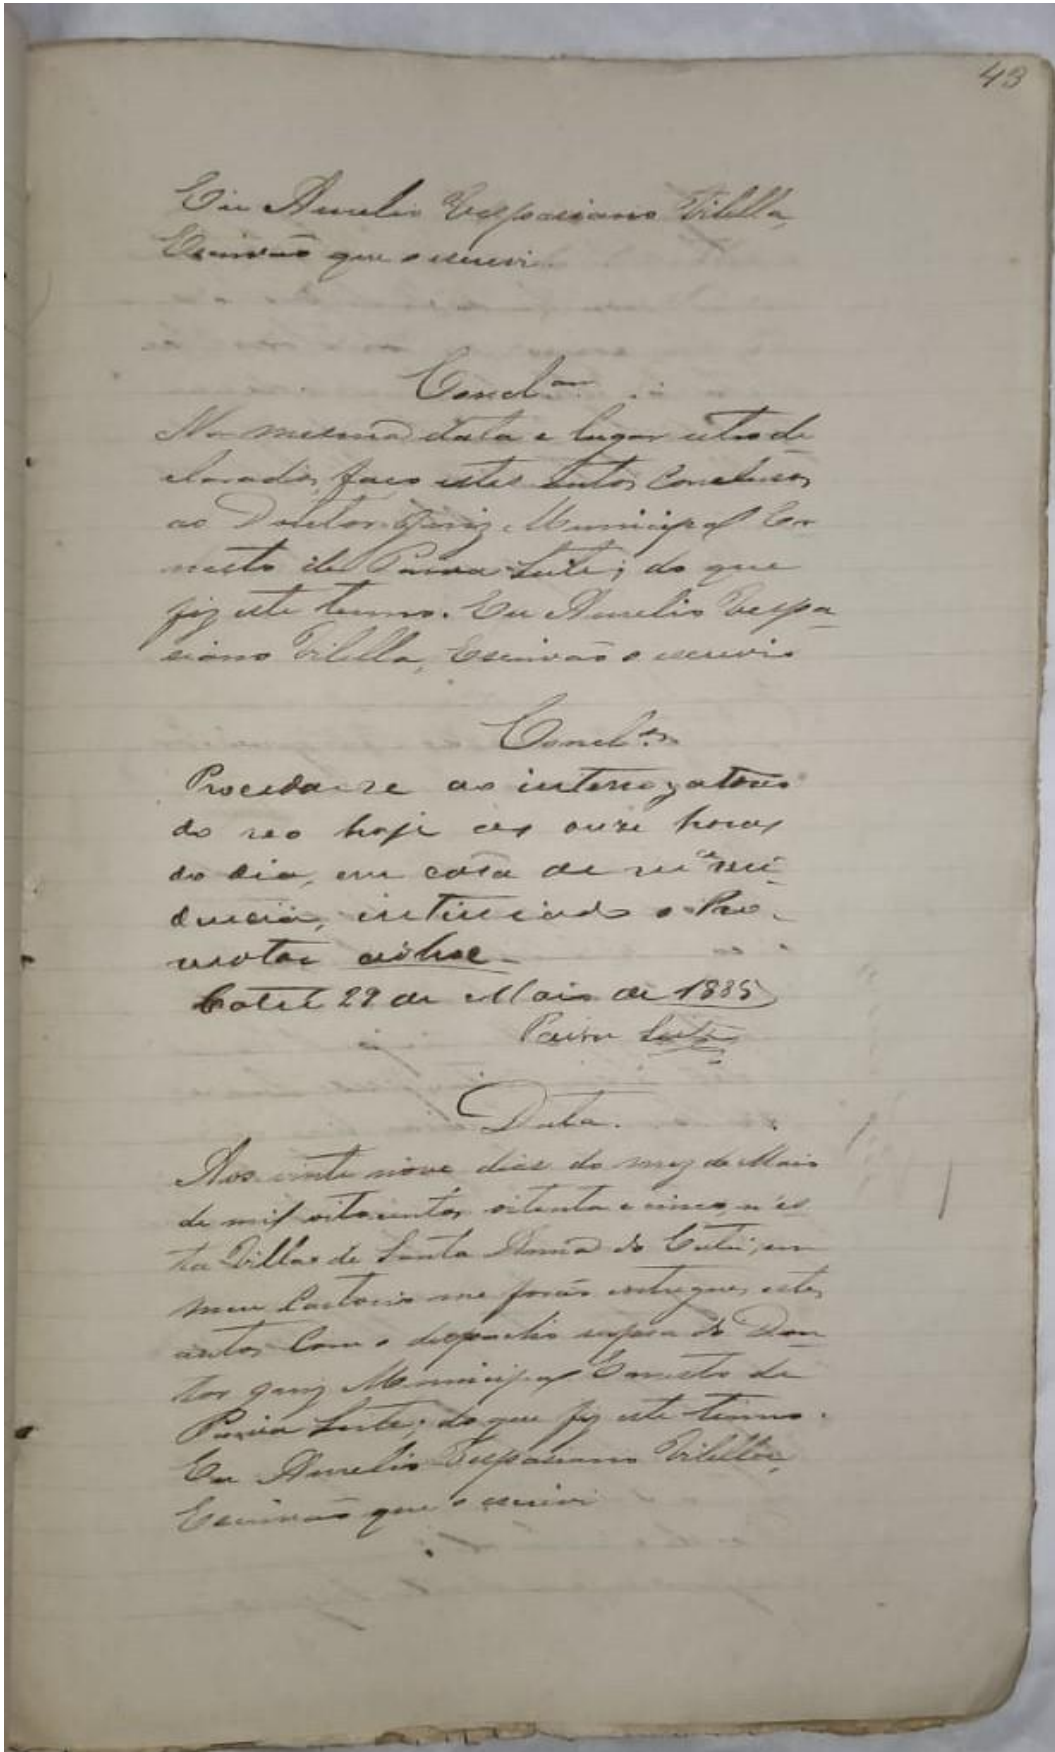 43
Eu Aurelio Vespasiano Vilella,
Escrivão que o escrevi
Concl.am
Na mesma data e lugar retro de
clarados, faço estes autos conclusos
ao Doutor Juiz Municipal Er
nesto de Paiva Leite; do que
fiz este termo. Eu Aurelio Vespa
siano Vilella, Escrivão o escrevi
Concl.os
Proceda-se ao interrogatorio
do reo hoje as onze horas
do dia, em casa de m.a resi
dencia, intimado o Pro-
motor adhoc
Catú 29 de Maio de 1885
Paiva Leite
Data.
Aos vinte nove dias do mez de Maio
de mil oitocentos oitenta e cinco, n'es
ta Villa de Santa Anna do Catú, em
meu Cartorio me forão entregues estes
autos com o despacho supra do Dou
tor Juiz Municipal Ernesto de
Paiva Leite; do que fiz este termo.
Eu Aurelio Vespasiano Vilella,
Escrivão que o escrevi